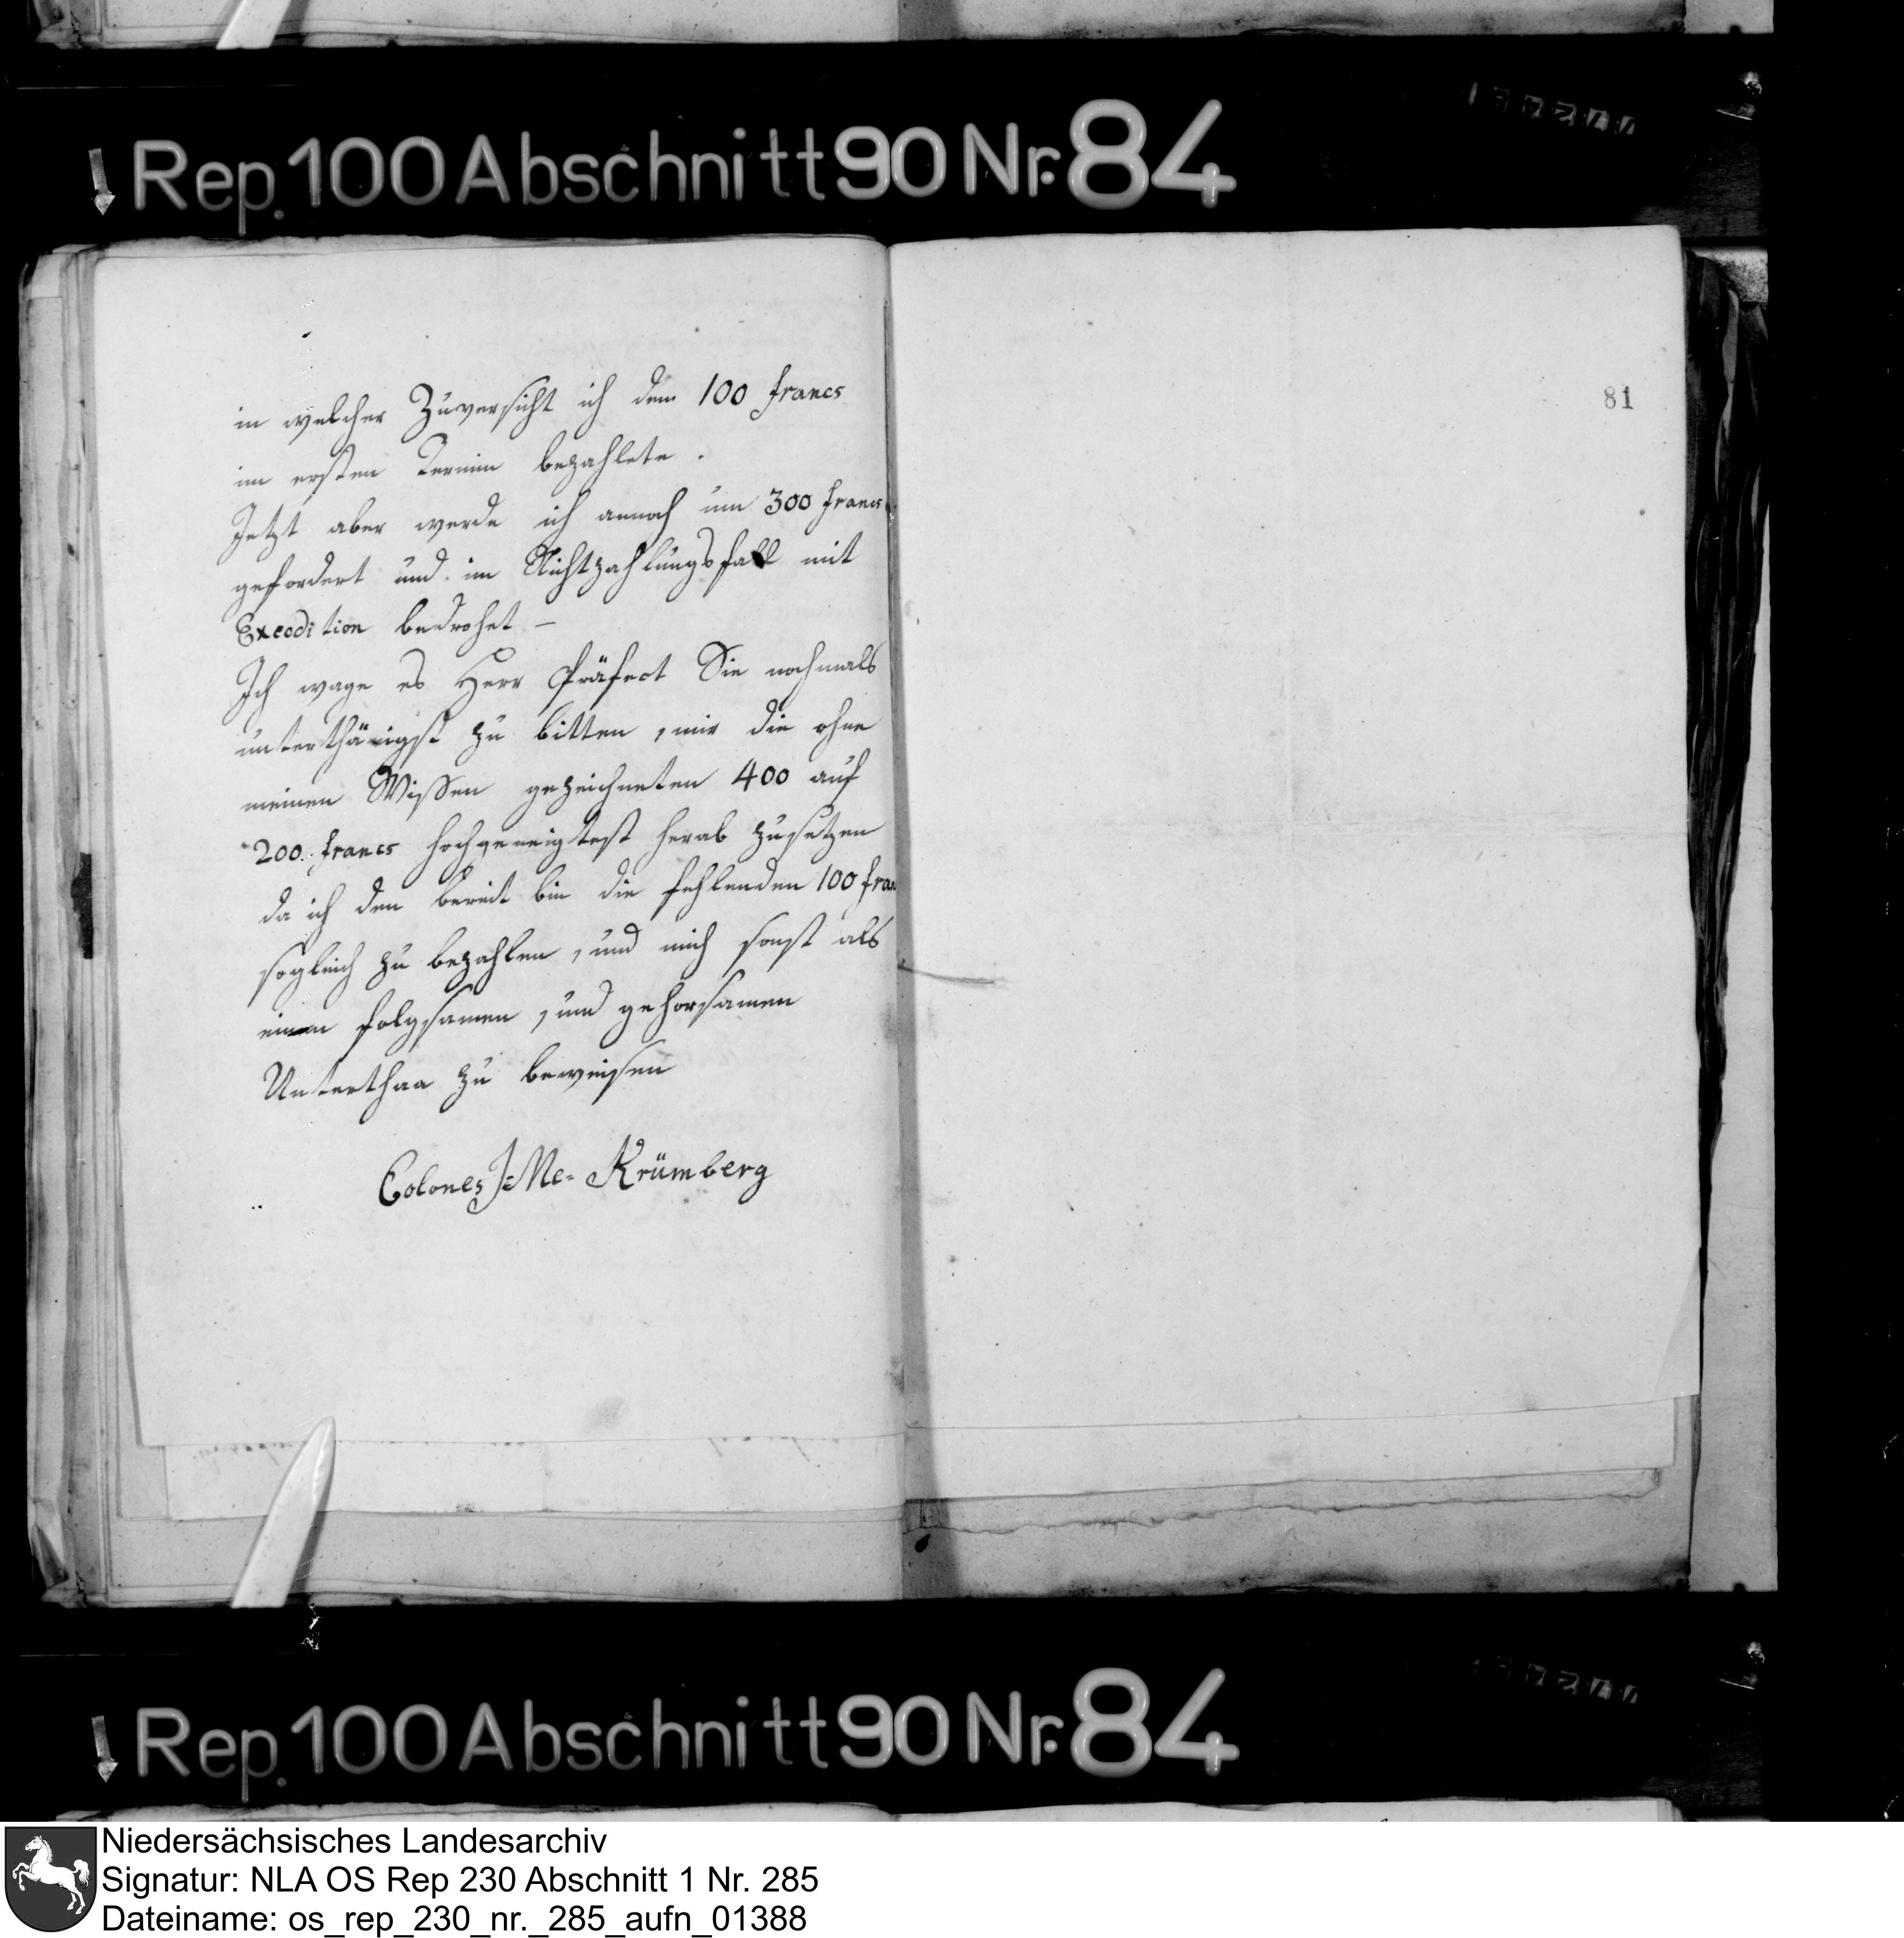 Rep. 100 Abschnitt 90 Nr. 84
81
in welcher Zuversicht ich dem 100 francs
im ersten Termin bezahlete.
Jetzt aber werde ich annoch um 300 francs
gefordert und im Nichtzahlungsfall mit
Execution bedrohet –
Ich wage es Herr Präfect Sie nochmals
unterthänigst zu bitten, mir die ohne
meinen Wißen gezeichneten 400 auf
200. francs hochgeneigtest herab zusetzen
da ich den bereit bin die fehlenden 100 fran
sogleich zu bezahlen, und mich sonst als
einen folgsamen, und gehorsamen
Unterthan zu beweisen
Krümberg
Rep. 100 Abschnitt 90 Nr. 84
Niedersächsisches Landesarchiv
Signatur: NLA OS Rep 230 Abschnitt 1 Nr. 285
Dateiname: os_rep_230_nr._285_aufn_01388